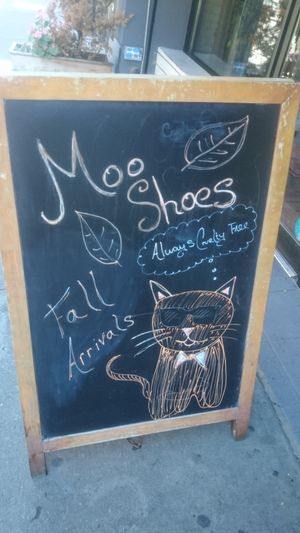 Moo
Shoes
Always Cruelty Free
Fall
Arrivals